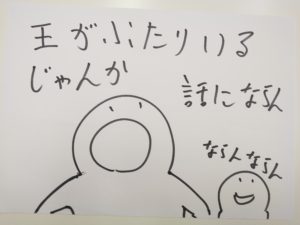 王がふたりいる
じゃんか
話にならん
ならんならん